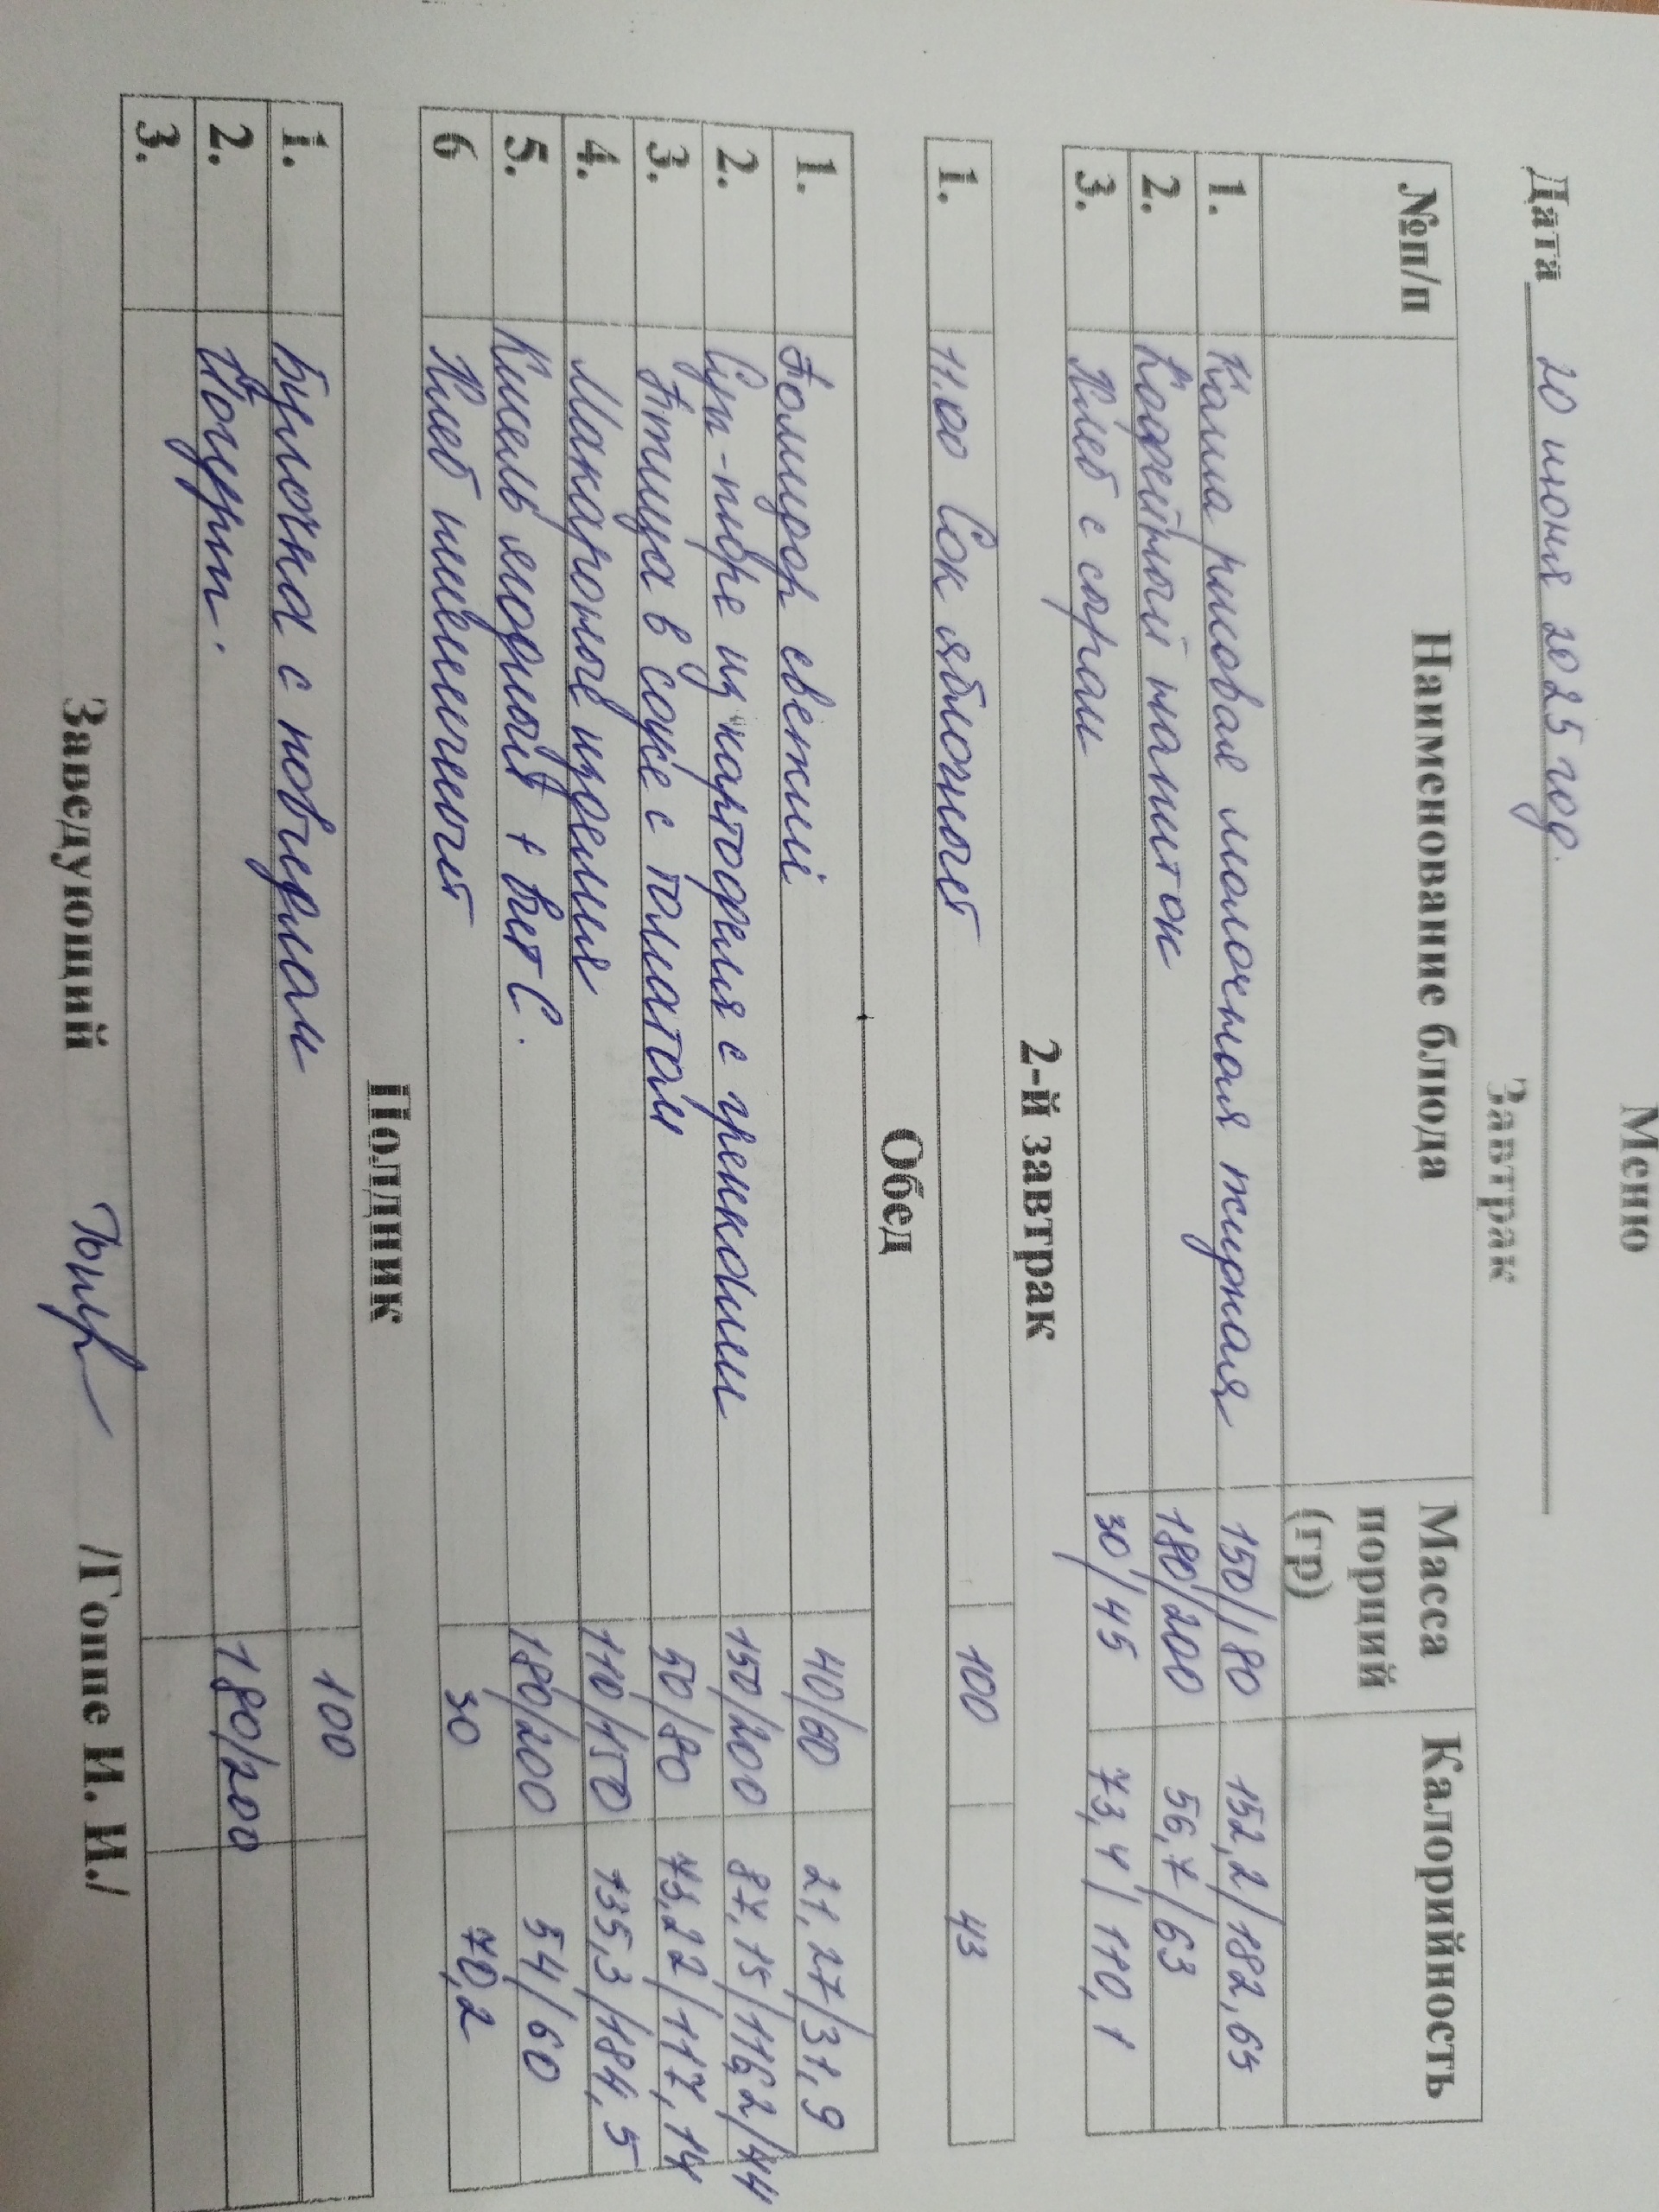 Меню
Дата 20 июня 2025 год.
Завтрак
№п/п Наименование блюда Масса порций (гр) Калорийность
1. Каша рисовая молочная жидкая 150/180 152,2/182,65
2. Кофейный напиток 180/200 56,7/63
3. Хлеб с сыром 30/45 73,4/110,1
2-й завтрак
1. 11.00 Сок яблочный 100 43
Обед
1. Помидор свежий 40/60 21,27/31,9
2. Суп-пюре из картофеля с гренками 150/200 87,15/116,2/44
3. Птица в соусе с томатом 50/80 73,22/117,14
4. Макаронные изделия 110/150 135,3/184,5
5. Кисель ягодный + вит С. 180/200 54/60
6 Хлеб пшеничный 30 70,2
Полдник
1. Булочка с повидлом 100
2. Йогурт. 180/200
3.
Заведующий /Гоппе И. И./